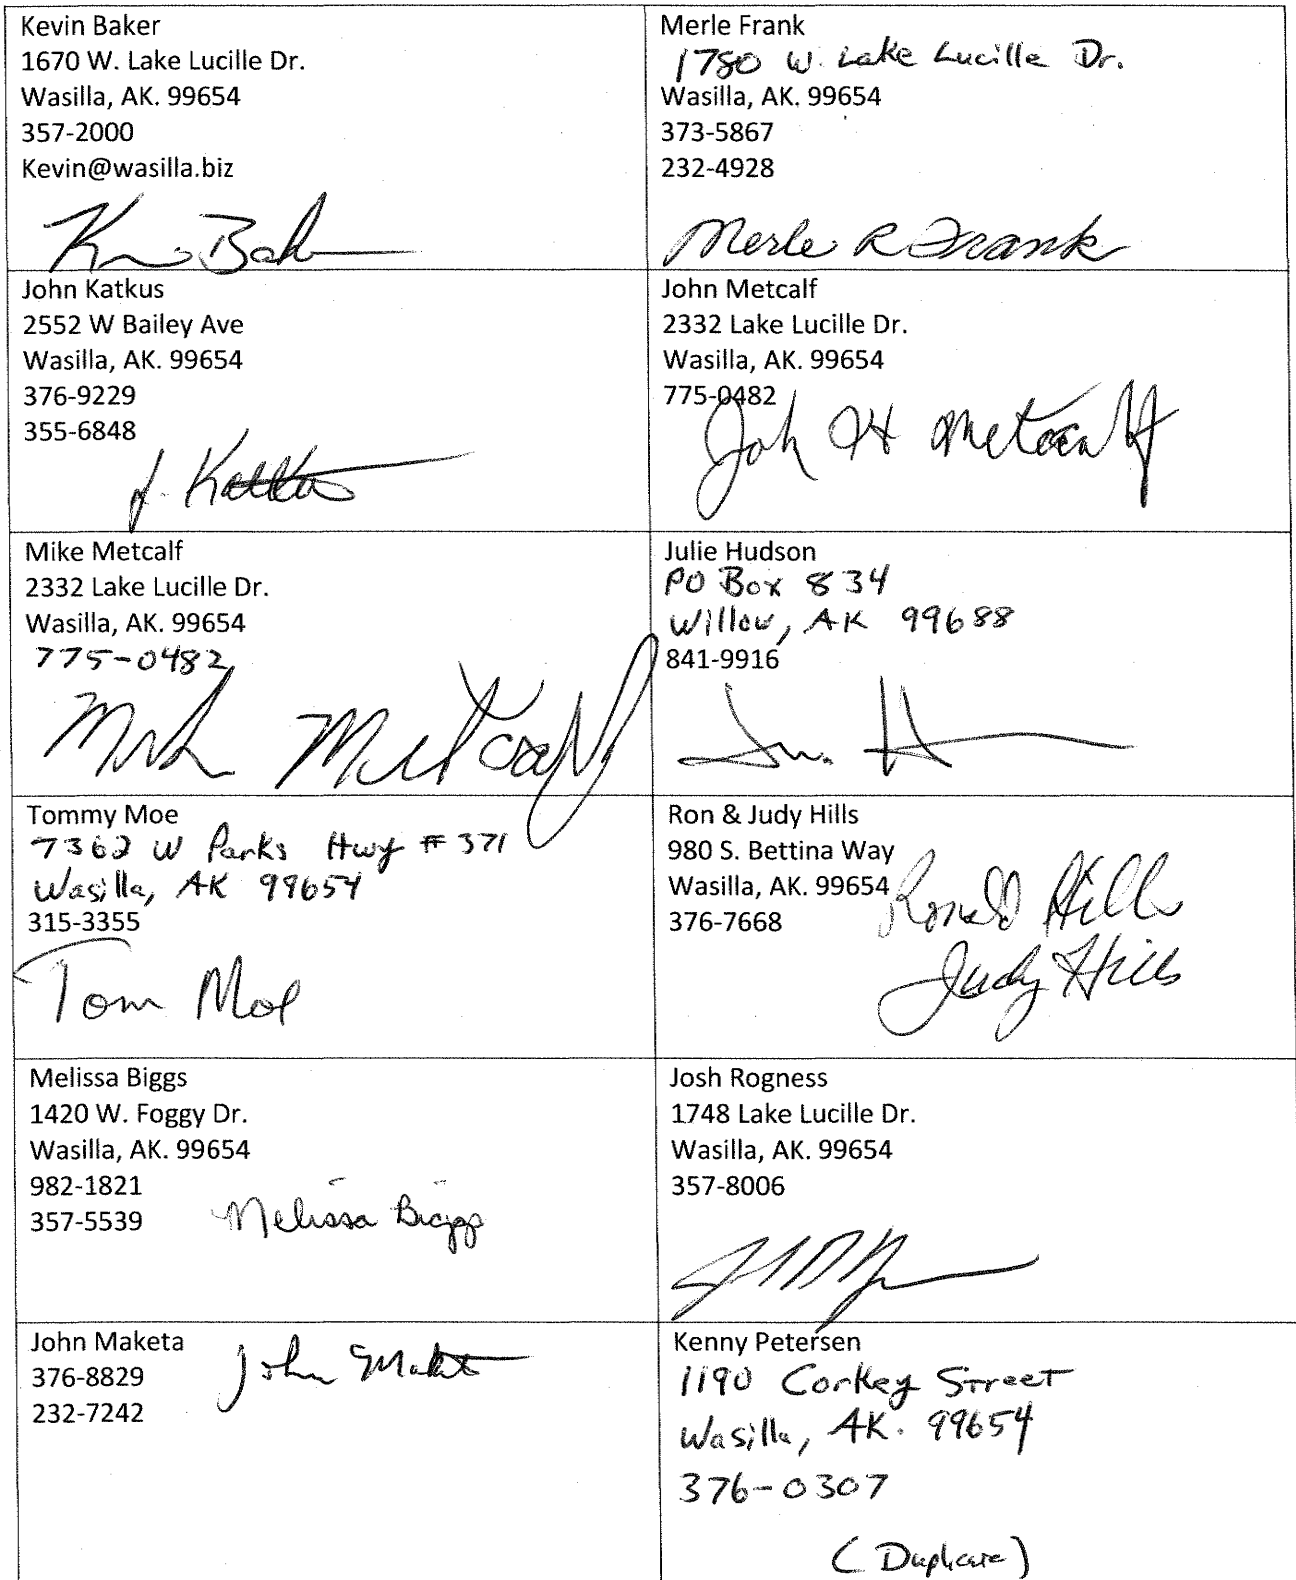 Kevin Baker
1670 W. Lake Lucille Dr.
Wasilla, AK. 99654
357-2000
Kevin@wasilla.biz
Merle Frank
1780 W. Lake Lucille Dr.
Wasilla, AK. 99654
373-5867
232-4928
Merle R Frank
John Katkus
2552 W Bailey Ave
Wasilla, AK. 99654
376-9229
355-6848
J. Katkus
John Metcalf
2332 Lake Lucille Dr.
Wasilla, AK. 99654
775-0482
John H Metcalf
Mike Metcalf
2332 Lake Lucille Dr.
Wasilla, AK. 99654
775-0482
Metcalf
Julie Hudson
PO Box 834
Willow, AK 99688
841-9916
Tommy Moe
7362 W Parks Hwy # 371
Wasilla, AK 99654
315-3355
Tom Moe
Ron & Judy Hills
980 S. Bettina Way
Wasilla, AK. 99654
376-7668
Ronald Hills
Judy Hills
Melissa Biggs
1420 W. Foggy Dr.
Wasilla, AK. 99654
982-1821
357-5539
Melissa Biggs
Josh Rogness
1748 Lake Lucille Dr.
Wasilla, AK. 99654
357-8006
John Maketa
376-8829
232-7242
John Maketa
Kenny Petersen
1190 Corkey Street
Wasilla, AK. 99654
376-0307
(Duplicate)